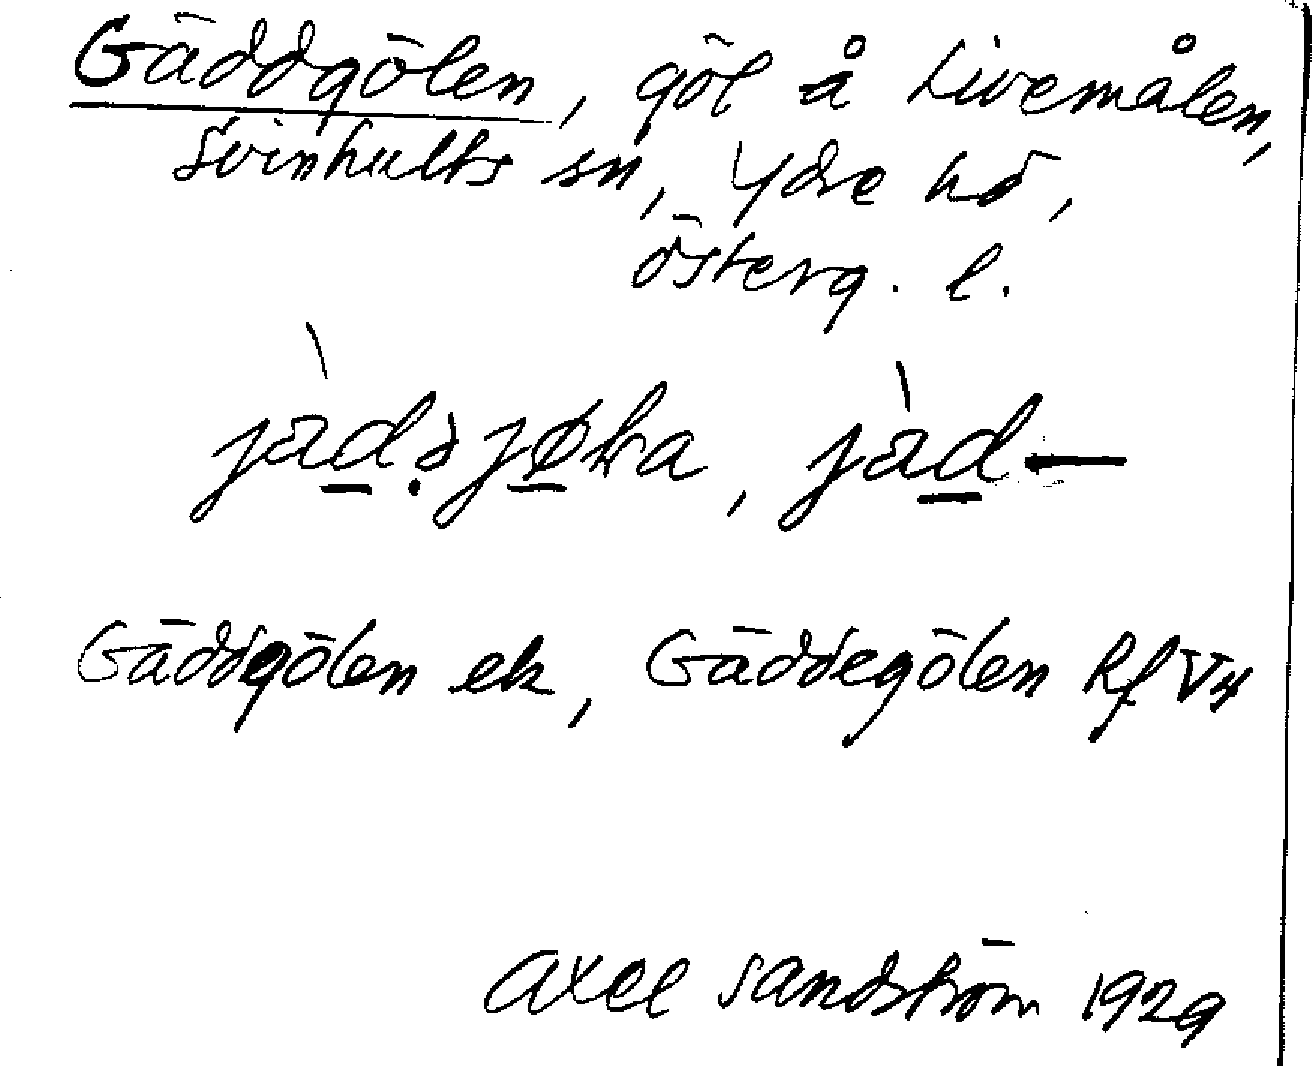 Gäddgölen, göl å Livemålen,
Svinhults sn, Ydre hd,
Österg. l.
Gäddgölen ek, Gäddegölen Rf V4
Axel Sandström 1929